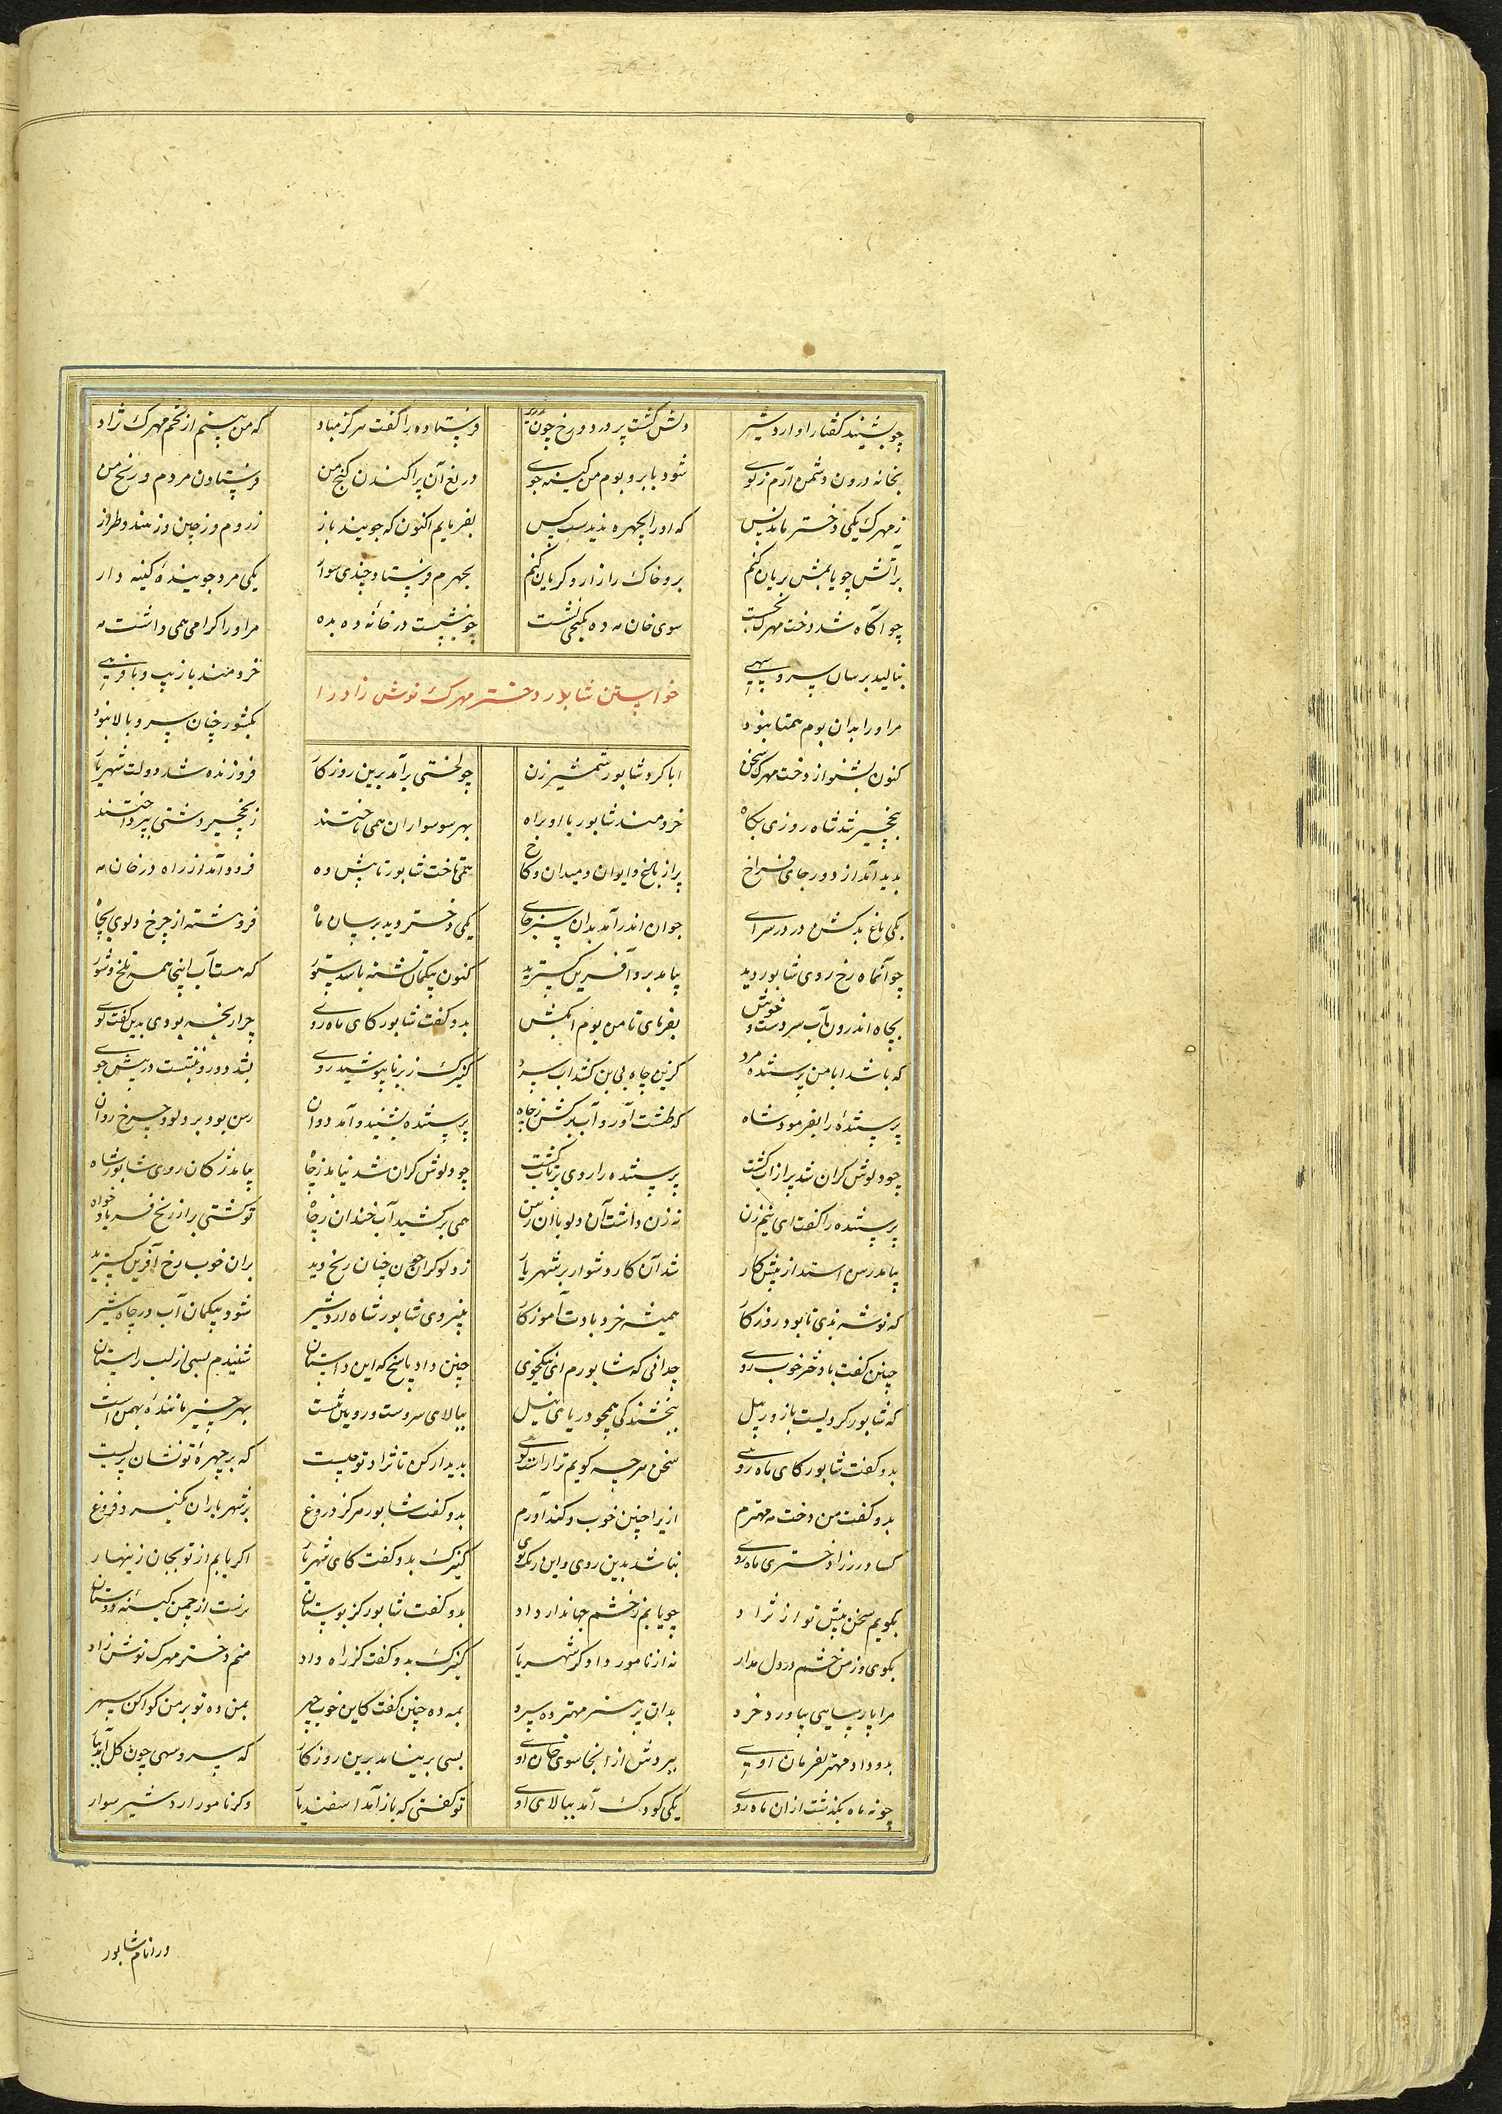 چو بشنید گفتار او اردشیر دلش گشت پر درد و رخ چون زریر فرستاده را گفت هرگز مباد که من بینم از تخم مهرک نژاد
بخانه درون دشمن آرم ز کوی شود با بر و بوم من کینه جوی دریغ آن پراکندن گنج من فرستادن مردم و رنج من
ز مهرک یکی دختر ماند بس که او را بچهره ندیدست کس بفرمایم اکنون که جویند باز ز روم و ز چین و ز هند و طراز
بر آتش چو یابمش بریان کنم برو خاک را زار و گریان کنم بجهرم فرستاد چندی سوار یکی مرد جوینده کینه دار
چو آگاه شد دخت مهرک بجست سوی خان مه ده بکنجی نشست چو بنشست در خانه ده بده مر او را گرامی همی داشت مه
ببالید بر سان سرو سهی خردمند با زیب و با فرهی
خواستن شاپور دختر مهرک نوش زاد را
مر او را بدان بوم همتا نبود بکشور چنان سرو بالا نبود
کنون بشنو از دخت مهرک سخن ابا گرد شاپور شمشیرزن چو لختی برآمد برین روزگار فروزنده شد دولت شهریار
بنخچیر شد شاه روزی پگاه خردمند شاپور با او براه بهر سو سواران همی تاختند ز نخچیر دشتی بپرداختند
پدید آمد از دور جای فراخ پر از باغ و ایوان و میدان و کاخ همی تاخت شاپور تا پیش ده فرود آمد از راه در خان مه
یکی باغ بد کش در در سرای جوان اندر آمد بدان سبز جای یکی دختر دید بر سان ماه فروهشته از چرخ دلوی بچاه
چو آن ماه رخ روی شاپور دید بیامد برو آفرین گسترید کنون بیگمان تشنه باشد ستور که هست آب اینجا همه تلخ و شور
بچاه اندرون آب سردست و خوش بفرمای تا من بوم آبکش بدو گفت شاپور کای ماه روی چرا رنجه بودی بدین گفت گوی
که باشد ابا من پرستنده مرد کزین چاه بی بن کشد آب سرد کنیزک ز برنا بپوشید روی بشد دور و بنشست در پیش جوی
پرستنده را بفرمود شاه که طشت آور و آب برکش ز چاه پرستنده بشنید و آمد دوان رسن بود بر دلو و چرخ روان
چو دلوش گران شد پر از آب گشت پرستنده را روی پرتاب گشت چو دلوش گران شد نیامد ز چاه بیامد ژکان روی شاپور شاه
پرستنده را گفت ای نیم زن نه زن داشت آن دلو با آن رسن همی برکشید آب خندان ز چاه تو گشتی پر از رنج و فریاد خواه
بیامد رسن استد از پیش کار شد آن کار دشوار بر شهریار ز دلو گران چون چنان رنج دید بران خوب رخ آفرین گسترید
که نوشه بزی تا بود روزگار همیشه خرد بادت آموزگار بنیروی شاپور شاه اردشیر شود بیگمان آب در چاه شیر
چنین گفت با دختر خوب روی چه دانی که شاپورم ای نیکخوی چنین داد پاسخ که این داستان شنیدم بسی از لب راستان
که شاپور گردیست با زور پیل ببخشندگی همچو دریای نیل ببالای سروست و رویین تنست بهر چیز ماننده بهمن است
بدو گفت شاپور کای ماه روی سخن هر چه گویم ترا راست گوی پدیدار کن تا نژاد تو چیست که بر چهره تو نشان پریست
بدو گفت من دخت مه مهترم ازیرا چنین خوب و کندآورم بدو گفت شاپور هرگز دروغ بر شهریاران نگیرد فروغ
کساورزرا دختری ماه روی نباشد بدین روی و این رنگ بوی کنیزک بدو گفت کای شهریار اگر یابم از تو بجان زینهار
بگویم سخن پیش تو از نژاد چو یابم ز خشم جهاندار داد بدو گفت شاپور کز بوستان نرست از چمن کینه دوستان
بگوی و ز من خشم در دل مدار نه از نامور دادگر شهریار کنیزک بدو گفت کز راه داد منم دختر مهرک نوش زاد
مرا پارسایی بیاورد خرد بدان پر هنر مهتر ده سپرد بمه ده چنین گفت کاین خوب چهر بمن ده تو بر من گوا کن سپهر
بدو داد مهتر بفرمان اوی ببردش از آنجا سوی خان اوی بسی برنیامد برین روزگار که سرو سهی چون گل آمد ببار
چو نه ماه بگذشت از آن ماه روی یکی کودک آمد ببالای اوی تو گفتی که باز آمد اسفندیار و گر نامور اردشیر سوار
ورا نام شاپور